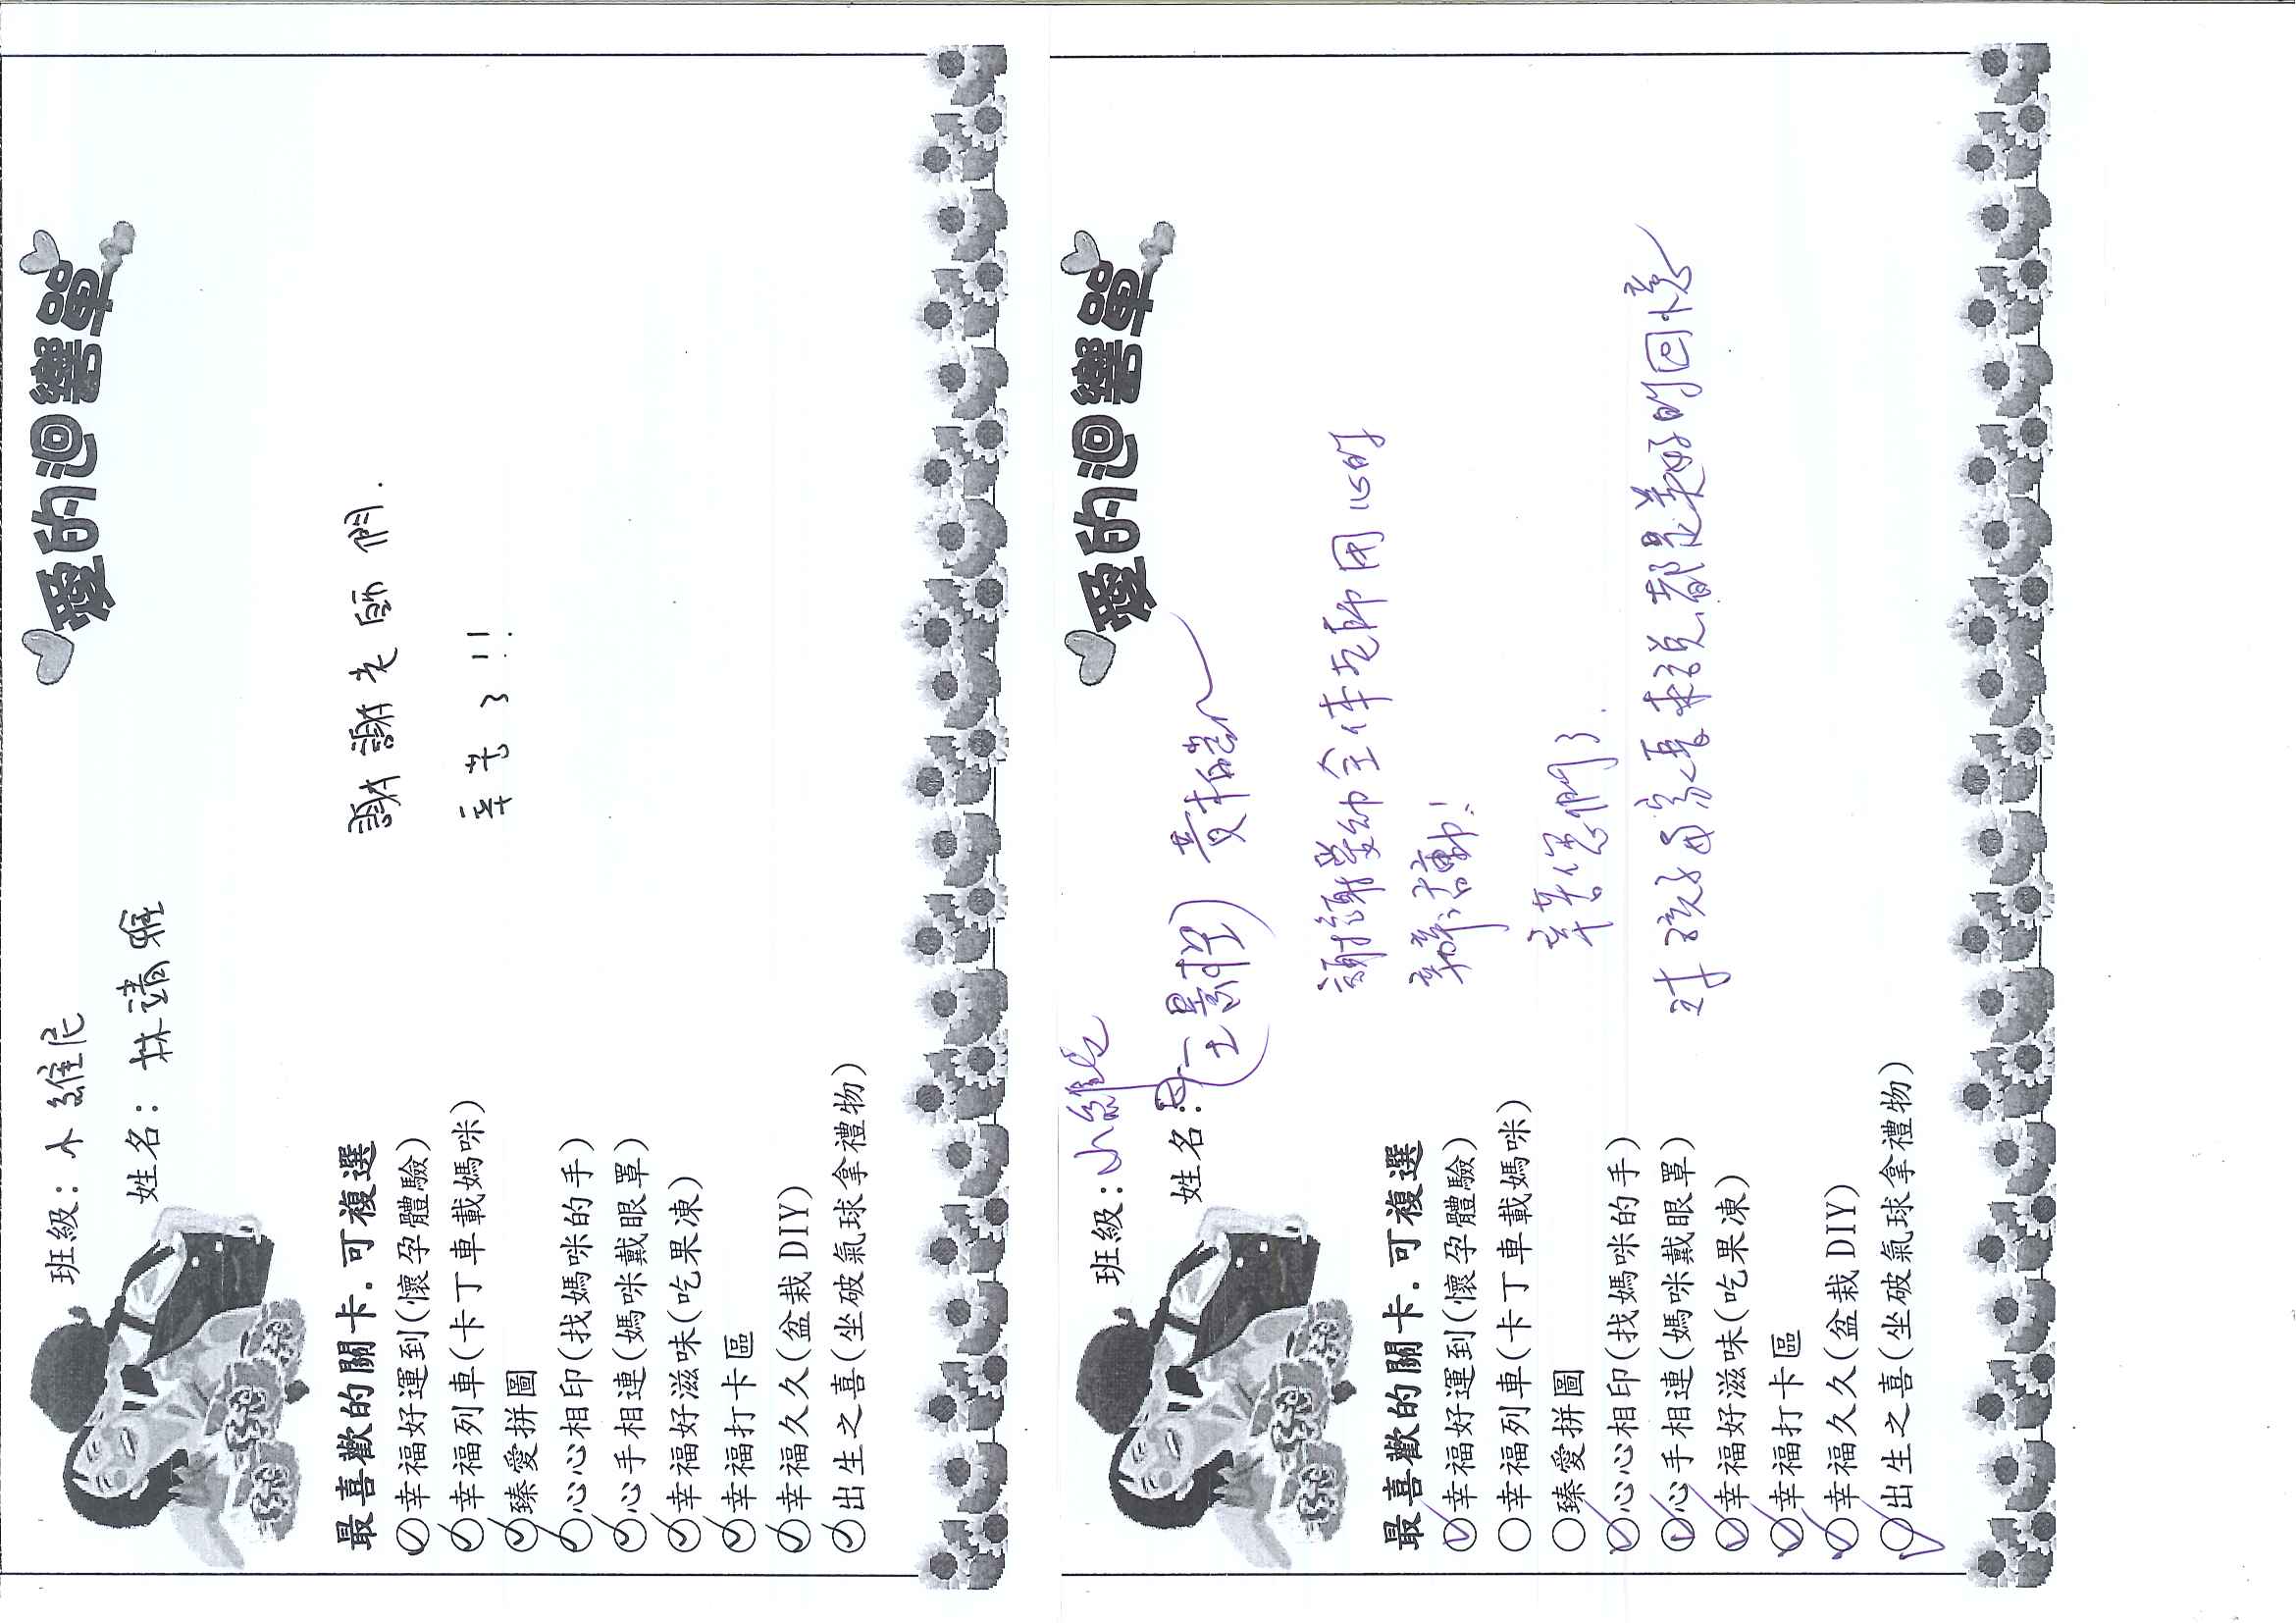 愛的迴響單
班級：小維尼
姓名：林靖雅
謝謝老師們.
辛苦了!!
最喜歡的關卡.可複選
幸福好運到(懷孕體驗)
幸福列車(卡丁車載媽咪)
臻愛拼圖
心心相印(找媽咪的手)
心手相連(媽咪戴眼罩)
幸福好滋味(吃果凍)
幸福打卡區
幸福久久(盆栽DIY)
出生之喜(坐破氣球拿禮物)
愛的迴響單
班級：小維尼
姓名：
謝謝愛幼全体老師团心的
辛苦您們了.
對孩子而言來說都是美好的回憶
最喜歡的關卡.可複選
幸福好運到(懷孕體驗)
幸福列車(卡丁車載媽咪)
臻愛拼圖
心心相印(找媽咪的手)
心手相連(媽咪戴眼罩)
幸福好滋味(吃果凍)
幸福打卡區
幸福久久(盆栽DIY)
出生之喜(坐破氣球拿禮物)